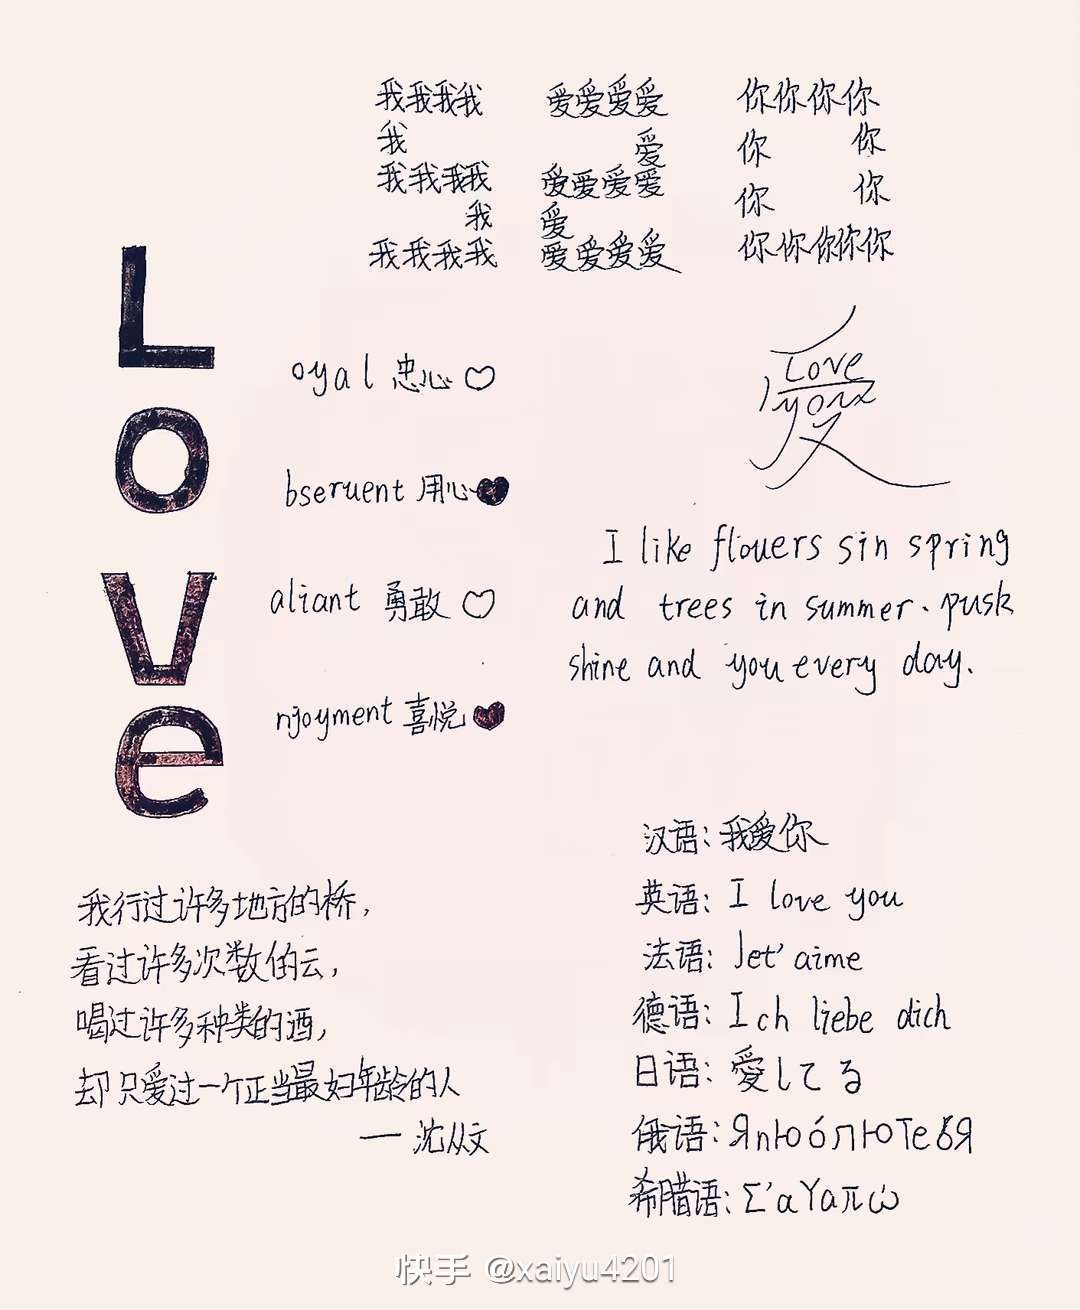 我我我我 爱爱爱爱 你你你你
我 爱 你 你
我我我我 爱爱爱爱 你 你
我 爱
我我我我 爱爱爱爱 你你你你你
Love
oyal 忠心
bseruent 用心
aliant 勇敢
njoyment 喜悦
Love
you
I like flouers sin spring
and trees in summer. pusk
shine and you every day.
我行过许多地方的桥，
看过许多次数的云，
喝过许多种类的酒，
却只爱过一个正当最好年龄的人
— 沈从文
汉语：我爱你
英语：I love you
法语：Jet'aime
德语：Ich liebe dich
日语：愛してる
俄语：ЯпЮблЮТебЯ
希腊语：Σ'αΥαπώ
快手 @xaiyu4201